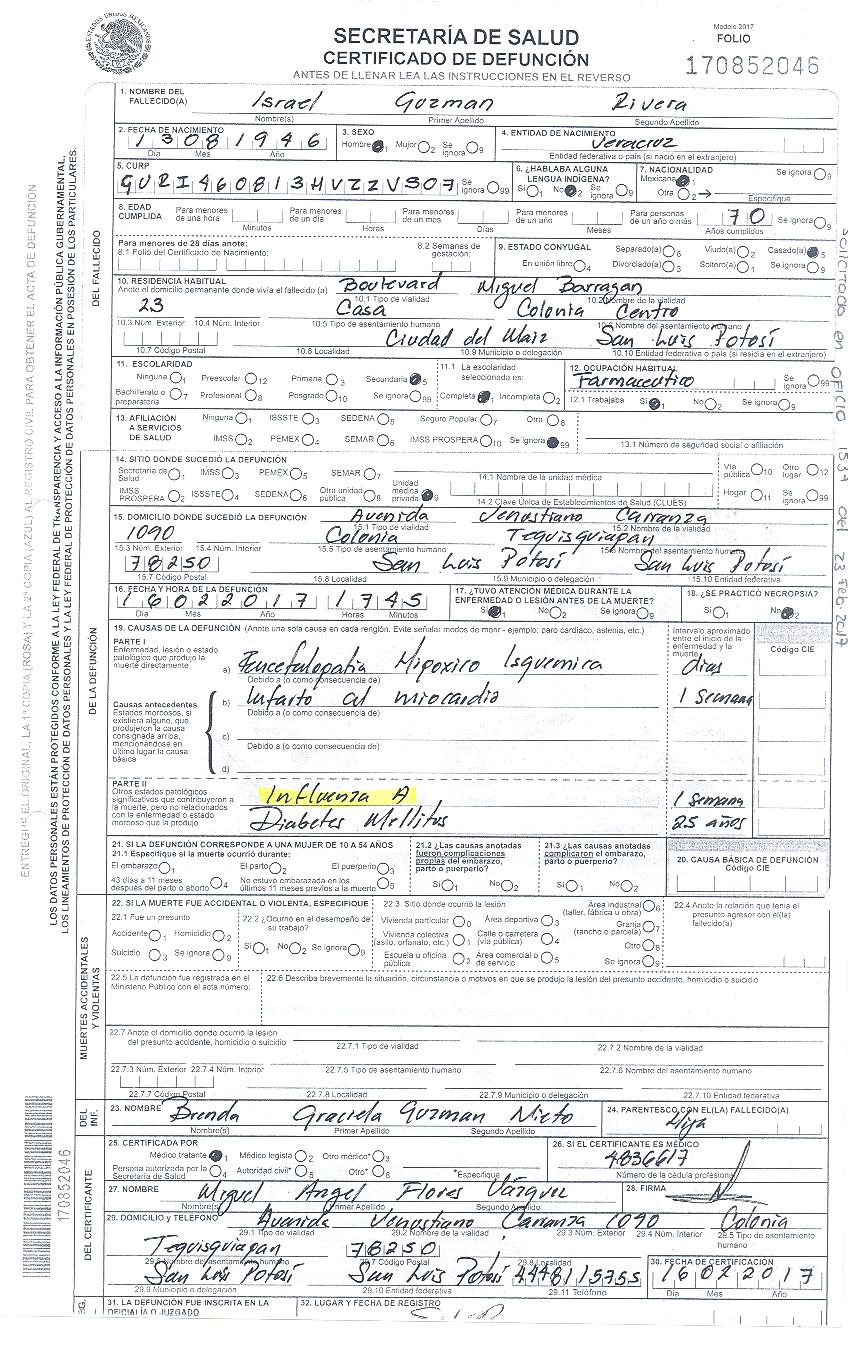 ESTADOS UNIDOS MEXICANOS
SECRETARÍA DE SALUD
CERTIFICADO DE DEFUNCIÓN
ANTES DE LLENAR LEA LAS INSTRUCCIONES EN EL REVERSO
Modelo 2017
FOLIO
170852046
1. NOMBRE DEL FALLECIDO(A) Israel Guzman Rivera
Nombre(s) Primer Apellido Segundo Apellido
2. FECHA DE NACIMIENTO 13 08 1946 3. SEXO Hombre 1 Mujer 2 Se ignora 9 4. ENTIDAD DE NACIMIENTO Veracruz
Día Mes Año Entidad federativa o país (si nació en el extranjero)
5. CURP GURI460813HVZZVS07 Se ignora 99 6. ¿HABLABA ALGUNA LENGUA INDÍGENA? Si 1 No 2 Se ignora 9 7. NACIONALIDAD Mexicana 1 Otra 2 Se ignora 9
Especifique
8. EDAD CUMPLIDA Para menores de una hora Minutos Para menores de un día Horas Para menores de un mes Días Para menores de un año Meses Para personas de un año o más 70 Años cumplidos Se ignora 9
Para menores de 28 días anote:
8.1 Folio del Certificado de Nacimiento: 8.2 Semanas de gestación: 9. ESTADO CONYUGAL Separado(a) 6 Viudo(a) 2 Casado(a) 5
En unión libre 4 Divorciado(a) 3 Soltero(a) 1 Se ignora 9
10. RESIDENCIA HABITUAL Boulevard Miguel Barragan
Anote el domicilio permanente donde vivía el fallecido (a) 10.1 Tipo de vialidad 10.2 Nombre de la vialidad
23 Casa Colonia Centro
10.3 Núm. Exterior 10.4 Núm. Interior 10.5 Tipo de asentamiento humano 10.6 Nombre del asentamiento humano
Ciudad del Maiz San Luis Potosí
10.7 Código Postal 10.8 Localidad 10.9 Municipio o delegación 10.10 Entidad federativa (o país si residía en el extranjero)
11. ESCOLARIDAD 11.1 La escolaridad seleccionada es: 12. OCUPACIÓN HABITUAL
Ninguna 1 Preescolar 12 Primaria 3 Secundaria 5 Farmaceutico Se ignora 99
Bachillerato o preparatoria 7 Profesional 8 Posgrado 10 Se ignora 99 Completa 1 Incompleta 2 12.1 Trabajaba Si 1 No 2 Se ignora 9
13. AFILIACIÓN A SERVICIOS DE SALUD Ninguna 1 ISSSTE 3 SEDENA 5 Seguro Popular 7 Otra 8
IMSS 2 PEMEX 4 SEMAR 6 IMSS PROSPERA 10 Se ignora 99 13.1 Número de seguridad social o afiliación
14. SITIO DONDE SUCEDIÓ LA DEFUNCIÓN
Secretaría de Salud 1 IMSS 3 PEMEX 5 SEMAR 7 Unidad médica privada 9 14.1 Nombre de la unidad médica Vía pública 10 Otro lugar 12
IMSS PROSPERA 2 ISSSTE 4 SEDENA 6 Otra unidad pública 8 14.2 Clave Única de Establecimientos de Salud (CLUES) Hogar 11 Se ignora 99
15. DOMICILIO DONDE SUCEDIÓ LA DEFUNCIÓN Avenida Venustiano Carranza
15.1 Tipo de vialidad 15.2 Nombre de la vialidad
1090 Colonia Tequisquiapan
15.3 Núm. Exterior 15.4 Núm. Interior 15.5 Tipo de asentamiento humano 15.6 Nombre del asentamiento humano
78250 San Luis Potosí San Luis Potosí
15.7 Código Postal 15.8 Localidad 15.9 Municipio o delegación 15.10 Entidad federativa
16. FECHA Y HORA DE LA DEFUNCIÓN 17. ¿TUVO ATENCIÓN MÉDICA DURANTE LA ENFERMEDAD O LESIÓN ANTES DE LA MUERTE? 18. ¿SE PRACTICÓ NECROPSIA?
16 02 2017 17 45 Si 1 No 2 Se ignora 9 Si 1 No 2
Día Mes Año Horas Minutos
19. CAUSAS DE LA DEFUNCIÓN (Anote una sola causa en cada renglón. Evite señalar modos de morir - ejemplo: paro cardiaco, astenia, etc.) Intervalo aproximado entre el inicio de la enfermedad y la muerte Código CIE
PARTE I
Enfermedad, lesión o estado patológico que produjo la muerte directamente a) Encefalopatia Hipoxico Isquemica días
Debido a (o como consecuencia de)
Causas antecedentes b) Infarto al miocardio 1 semana
Estados morbosos, si existiera alguno, que produjeron la causa consignada arriba, mencionándose en último lugar la causa básica
Debido a (o como consecuencia de)
c)
Debido a (o como consecuencia de)
d)
PARTE II
Otros estados patológicos significativos que contribuyeron a la muerte, pero no relacionados con la enfermedad o estado morboso que la produjo
Influenza A 1 semana
Diabetes Mellitus 25 años
20. CAUSA BÁSICA DE DEFUNCIÓN
Código CIE
21. SI LA DEFUNCIÓN CORRESPONDE A UNA MUJER DE 10 A 54 AÑOS
21.1 Especifique si la muerte ocurrió durante:
El embarazo 1 El parto 2 El puerperio 3
43 días a 11 meses después del parto o aborto 4 No estuvo embarazada en los últimos 11 meses previos a la muerte 5
21.2 ¿Las causas anotadas fueron complicaciones propias del embarazo, parto o puerperio? Si 1 No 2
21.3 ¿Las causas anotadas complicaron el embarazo, parto o puerperio? Si 1 No 2
22. SI LA MUERTE FUE ACCIDENTAL O VIOLENTA, ESPECIFIQUE
22.1 Fue un presunto
Accidente 1 Homicidio 2
Suicidio 3 Se ignora 9
22.2 ¿Ocurrió en el desempeño de su trabajo?
Si 1 No 2 Se ignora 9
22.3 Sitio donde ocurrió la lesión
Vivienda particular 0 Área deportiva 3 Área industrial (taller, fábrica u obra) 6
Vivienda colectiva (asilo, orfanato, etc.) 1 Calle o carretera (vía pública) 4 Granja (rancho o parcela) 7
Escuela u oficina pública 2 Área comercial o de servicio 5 Otro 8
Se ignora 9
22.4 Anote la relación que tenía el presunto agresor con el(la) fallecido(a)
22.5 La defunción fue registrada en el Ministerio Público con el acta número:
22.6 Describa brevemente la situación, circunstancia o motivos en que se produjo la lesión del presunto accidente, homicidio o suicidio
22.7 Anote el domicilio donde ocurrió la lesión del presunto accidente, homicidio o suicidio
22.7.1 Tipo de vialidad 22.7.2 Nombre de la vialidad
22.7.3 Núm. Exterior 22.7.4 Núm. Interior 22.7.5 Tipo de asentamiento humano 22.7.6 Nombre del asentamiento humano
22.7.7 Código Postal 22.7.8 Localidad 22.7.9 Municipio o delegación 22.7.10 Entidad federativa
23. NOMBRE Brenda Graciela Guzman Nieto 24. PARENTESCO CON EL(LA) FALLECIDO(A) Hija
Nombre(s) Primer Apellido Segundo Apellido
25. CERTIFICADA POR 26. SI EL CERTIFICANTE ES MÉDICO
Médico tratante 1 Médico legista 2 Otro médico* 3 4836617
Persona autorizada por la Secretaría de Salud 4 Autoridad civil* 5 Otro* 8 *Especifique Número de la cédula profesional
27. NOMBRE Miguel Angel Flores Vázquez 28. FIRMA
Nombre(s) Primer Apellido Segundo Apellido
29. DOMICILIO y TELÉFONO Avenida Venustiano Carranza 1090 Colonia
29.1 Tipo de vialidad 29.2 Nombre de la vialidad 29.3 Núm. Exterior 29.4 Núm. Interior 29.5 Tipo de asentamiento humano
Tequisquiapan 78250
29.6 Nombre del asentamiento humano 29.7 Código Postal 29.8 Localidad
San Luis Potosí San Luis Potosí 4448115755 30. FECHA DE CERTIFICACIÓN 16 02 2017
29.9 Municipio o delegación 29.10 Entidad federativa 29.11 Teléfono Día Mes Año
31. LA DEFUNCIÓN FUE INSCRITA EN LA OFICIALÍA O JUZGADO 32. LUGAR Y FECHA DE REGISTRO
DEL FALLECIDO
DE LA DEFUNCIÓN
MUERTES ACCIDENTALES Y VIOLENTAS
DEL INF.
DEL CERTIFICANTE
ENTREGUE EL ORIGINAL, LA 1ª COPIA (ROSA) Y LA 2ª COPIA (AZUL) AL REGISTRO CIVIL PARA OBTENER EL ACTA DE DEFUNCIÓN
LOS DATOS PERSONALES ESTÁN PROTEGIDOS CONFORME A LA LEY FEDERAL DE TRANSPARENCIA Y ACCESO A LA INFORMACIÓN PÚBLICA GUBERNAMENTAL,
LOS LINEAMIENTOS DE PROTECCIÓN DE DATOS PERSONALES Y LA LEY FEDERAL DE PROTECCIÓN DE DATOS PERSONALES EN POSESIÓN DE LOS PARTICULARES.
170852046
Solicitado en oficio 1537 del 23 Feb. 2017